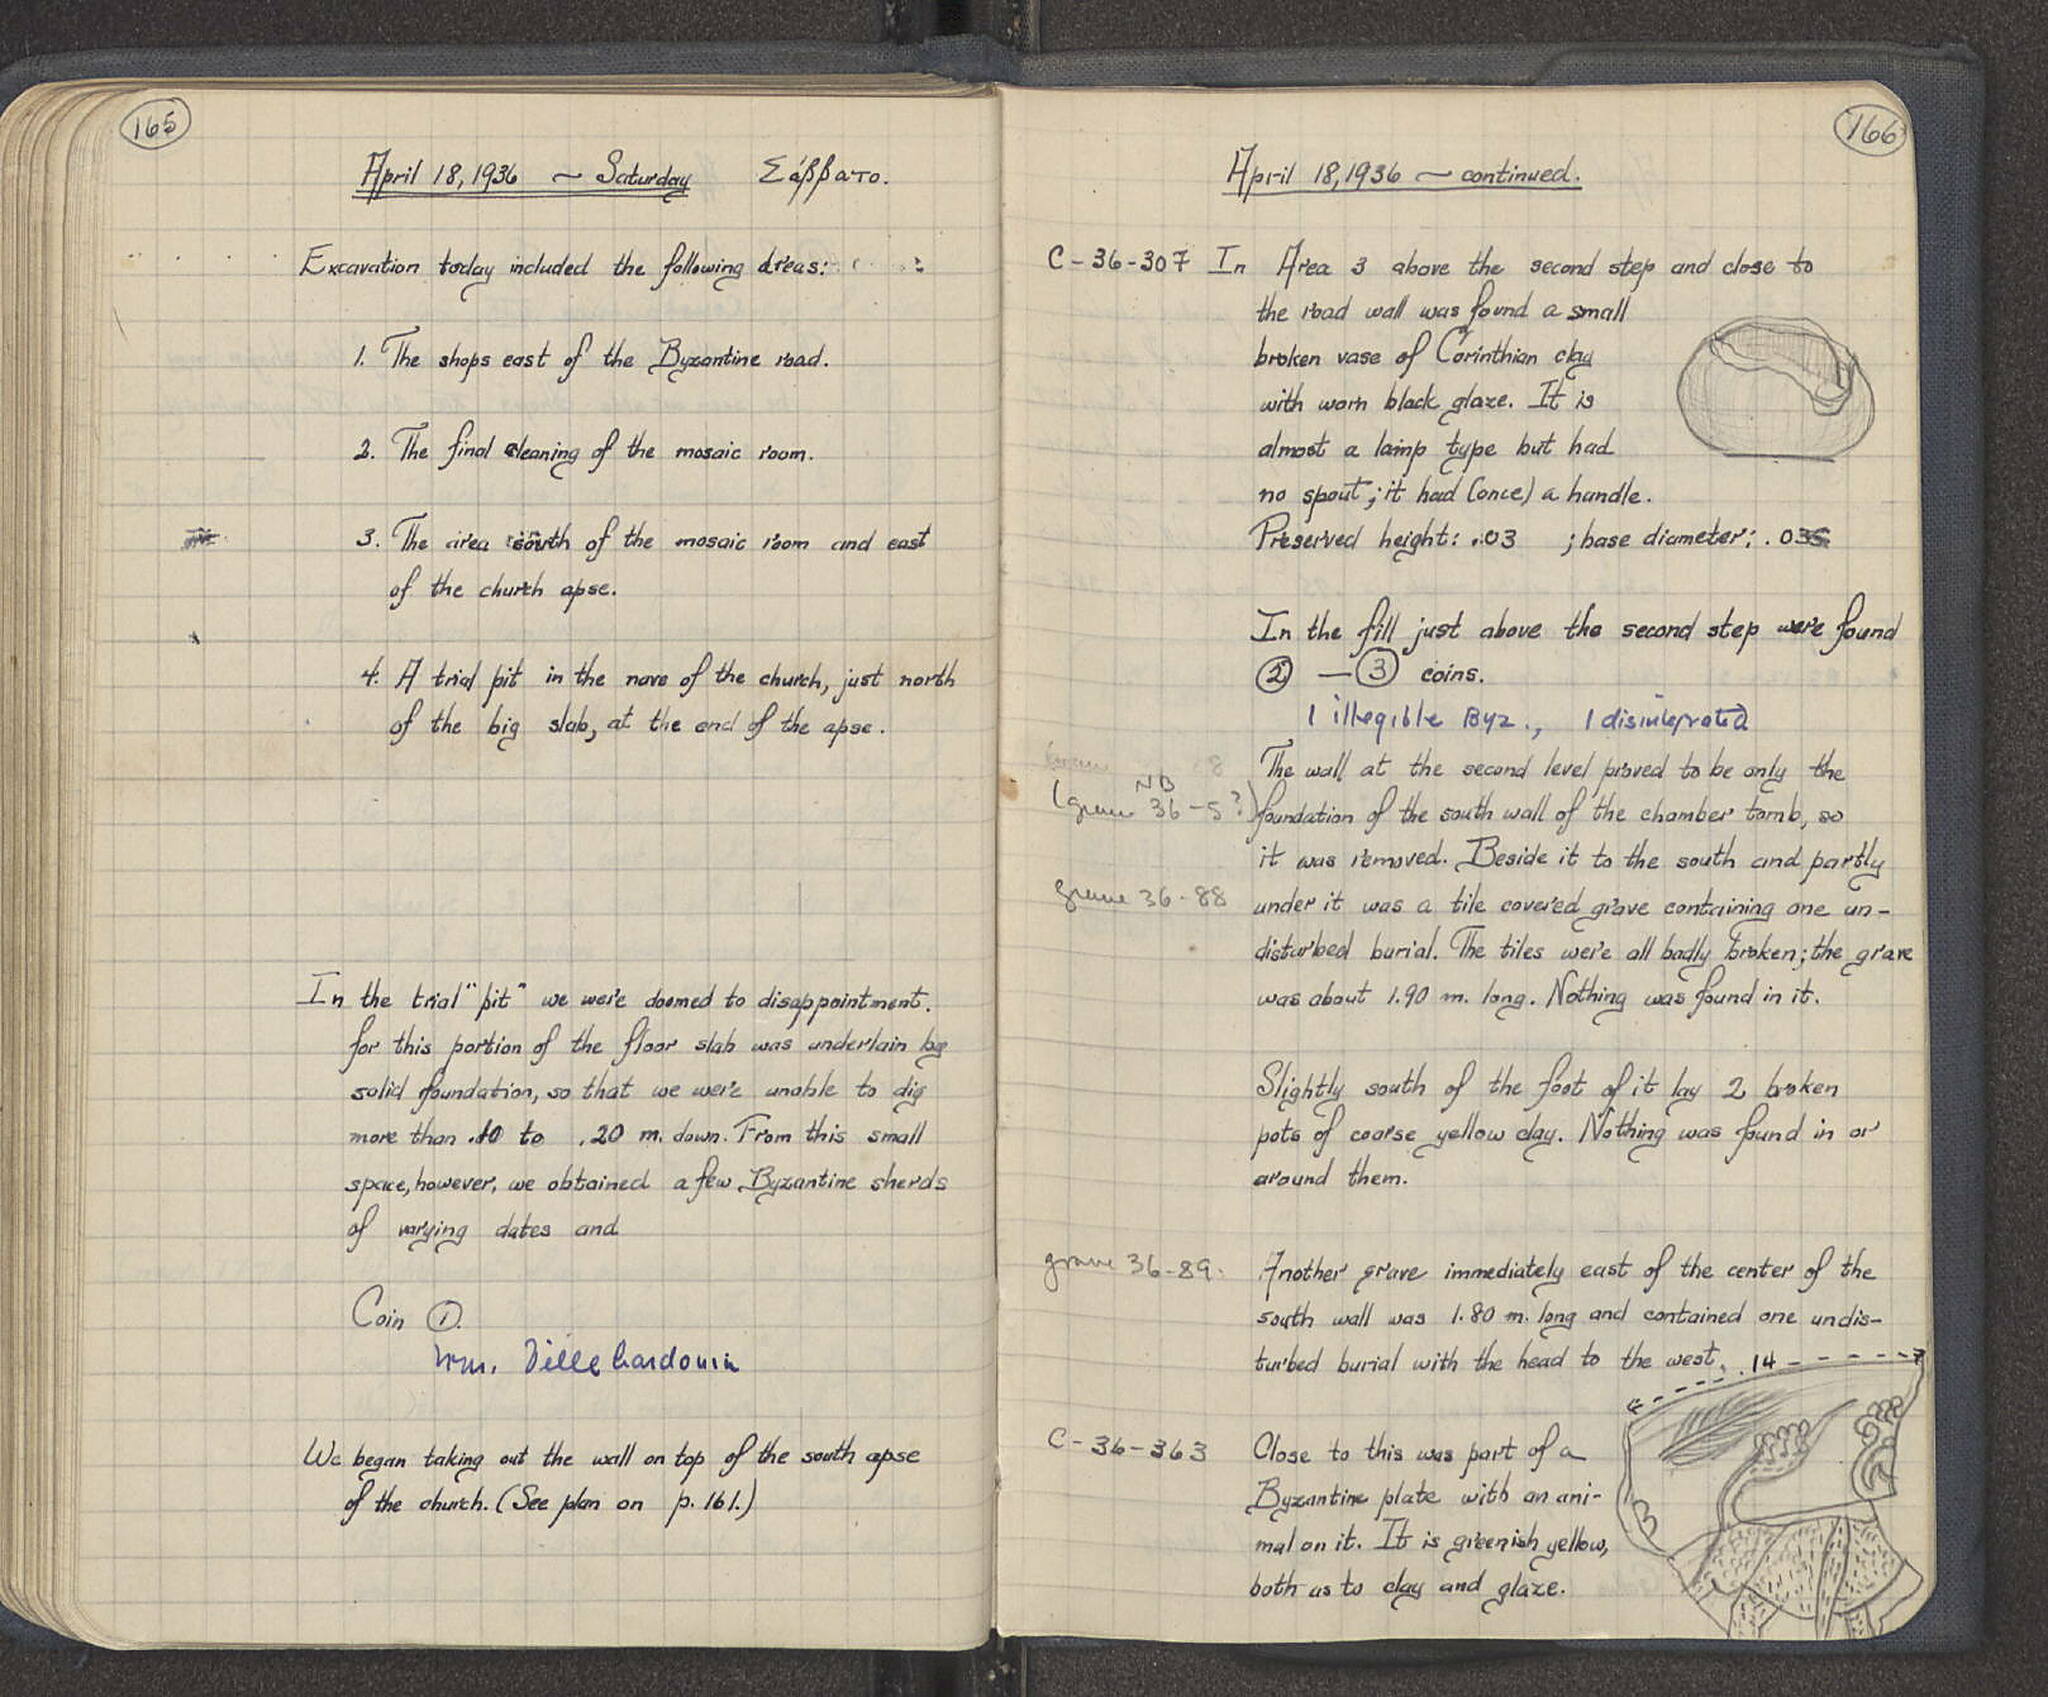 165
April 18, 1936 ~ Saturday Σάββατο.
Excavation today included the following areas:
1. The shops east of the Byzantine road.
2. The final cleaning of the mosaic room.
3. The area south of the mosaic room and east
of the church apse.
4. A trial pit in the nave of the church, just north
of the big slab, at the end of the apse.
In the trial "pit" we were doomed to disappointment.
for this portion of the floor slab was underlain by
solid foundation, so that we were unable to dig
more than .10 to .20 m. down. From this small
space, however, we obtained a few Byzantine sherds
of varying dates and
Coin ①.
Wm. Villehardouin
We began taking out the wall on top of the south apse
of the church. (See plan on p. 161.)
166
April 18, 1936 ~ continued.
C-36-307 In Area 3 above the second step and close to
the road wall was found a small
broken vase of Corinthian clay
with worn black glaze. It is
almost a lamp type but had
no spout; it had (once) a handle.
Preserved height: .03 ; base diameter: .035
In the fill just above the second step were found
② — ③ coins.
1 illegible Byz., 1 disintegrated
The wall at the second level proved to be only the
NB
(grave 36-5?) foundation of the south wall of the chamber tomb, so
it was removed. Beside it to the south and partly
grave 36-88 under it was a tile covered grave containing one un-
disturbed burial. The tiles were all badly broken; the grave
was about 1.90 m. long. Nothing was found in it.
Slightly south of the foot of it lay 2 broken
pots of coarse yellow clay. Nothing was found in or
around them.
grave 36-89. Another grave immediately east of the center of the
south wall was 1.80 m. long and contained one undis-
turbed burial with the head to the west.
.14
C-36-363 Close to this was part of a
Byzantine plate with an ani-
mal on it. It is greenish yellow,
both as to clay and glaze.